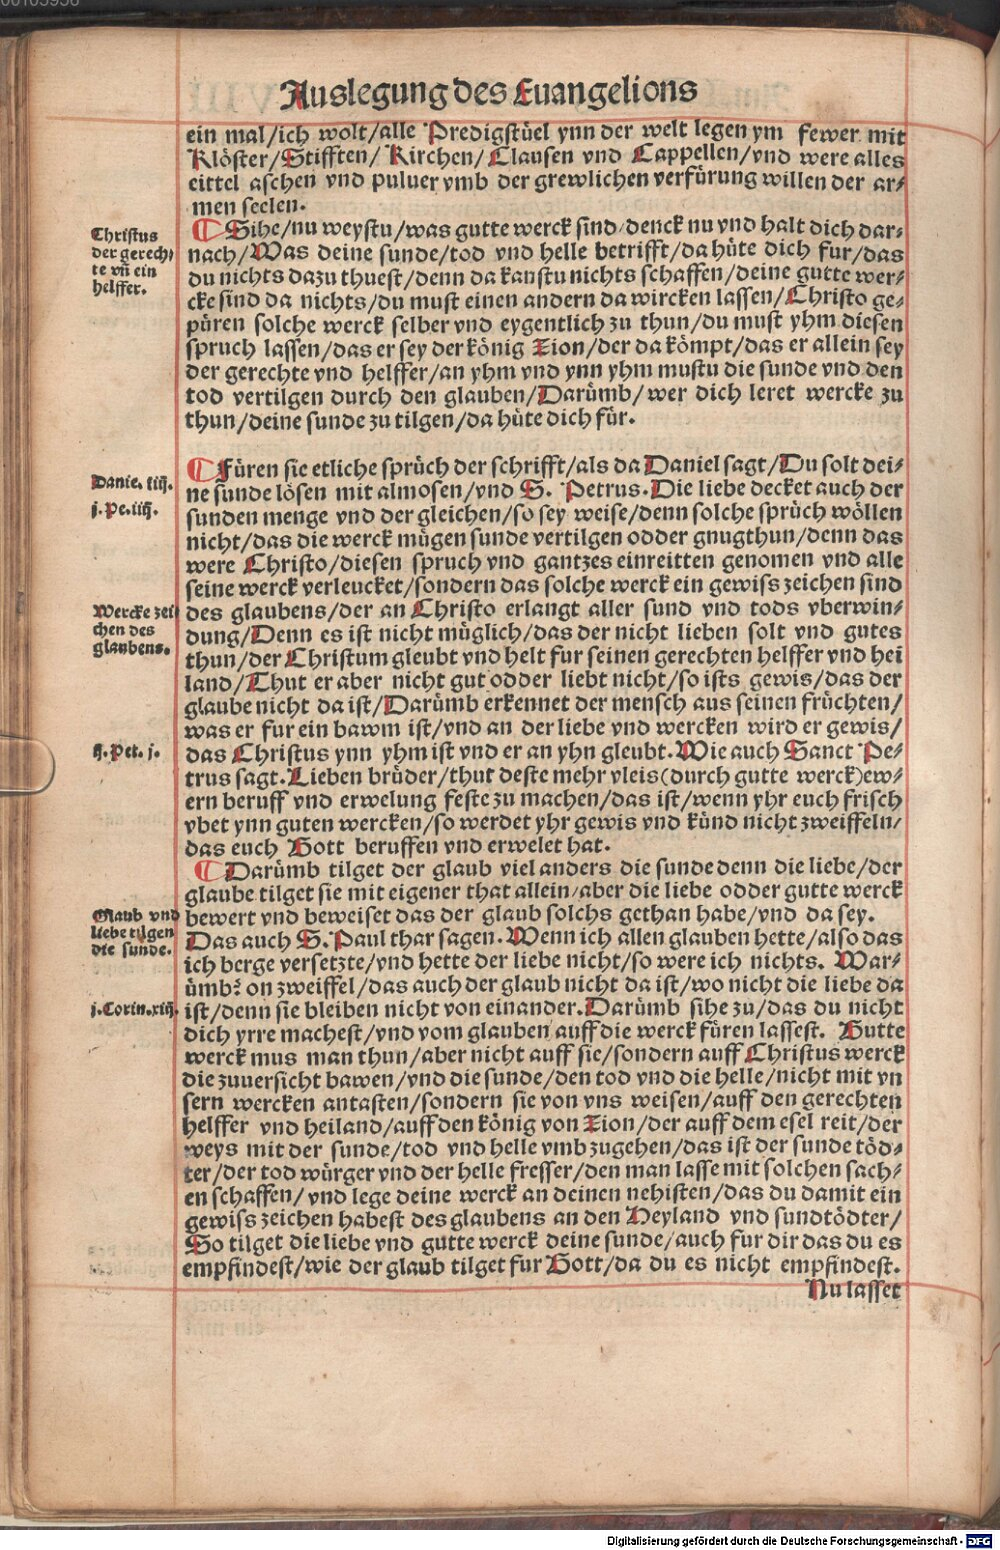 Auslegung des Euangelions
ein mal/ich wolt/alle Predigstüel ynn der welt legen ym fewer mit
Klöster/Stifften/ Kirchen/ Clausen vnd Cappellen/vnd were alles
eittel aschen vnd puluer vmb der grewlichen verfürung willen der ar⸗
men seelen.
Christus
der gerech⸗
te vñ ein
helffer.
¶ Sihe/nu weystu/was gutte werck sind/denck nu vnd halt dich dar⸗
nach/Was deine sunde/tod vnd helle betrifft/da hüte dich fur/das
du nichts dazu thuest/denn da kanstu nichts schaffen/deine gutte wer⸗
cke sind da nichts/du must einen andern da wircken lassen/Christo ge⸗
püren solche werck selber vnd eygentlich zu thun/du must yhm diesen
spruch lassen/das er sey der könig Zion/der da kömpt/das er allein sey
der gerechte vnd helffer/an yhm vnd ynn yhm mustu die sunde vnd den
tod vertilgen durch den glauben/Darümb/wer dich leret wercke zu
thun/deine sunde zu tilgen/da hüte dich für.
Danie. iiij.
j. Pe. iiij.
¶ Füren sie etliche sprüch der schrifft/als da Daniel sagt/Du solt dei⸗
ne sunde lösen mit almosen/vnd S. Petrus. Die liebe decket auch der
sunden menge vnd der gleichen/so sey weise/denn solche sprüch wöllen
nicht/das die werck mügen sunde vertilgen odder gnugthun/denn das
were Christo/diesen spruch vnd gantzes einreitten genomen vnd alle
seine werck verleucket/sondern das solche werck ein gewiss zeichen sind
Wercke zei
chen des
glaubens.
des glaubens/der an Christo erlangt aller sund vnd tods vberwin⸗
dung/Denn es ist nicht müglich/das der nicht lieben solt vnd gutes
thun/der Christum gleubt vnd helt fur seinen gerechten helffer vnd hei
land/Thut er aber nicht gut odder liebt nicht/so ists gewis/das der
glaube nicht da ist/Darümb erkennet der mensch aus seinen früchten/
was er fur ein bawm ist/vnd an der liebe vnd wercken wird er gewis/
ij. Pet. j.
das Christus ynn yhm ist vnd er an yhn gleubt. Wie auch Sanct Pe⸗
trus sagt. Lieben brüder/thut deste mehr vleis(durch gutte werck)ew⸗
ern beruff vnd erwelung feste zu machen/das ist/wenn yhr euch frisch
vbet ynn guten wercken/so werdet yhr gewis vnd künd nicht zweiffeln/
das euch Gott beruffen vnd erwelet hat.
¶ Darümb tilget der glaub viel anders die sunde denn die liebe/der
glaube tilget sie mit eigener that allein/aber die liebe odder gutte werck
Glaub vnd
liebe tilgen
die sunde.
bewert vnd beweiset das der glaub solchs gethan habe/vnd da sey.
Das auch S. Paul thar sagen. Wenn ich allen glauben hette/also das
ich berge versetzte/vnd hette der liebe nicht/so were ich nichts. War⸗
ümb? on zweiffel/das auch der glaub nicht da ist/wo nicht die liebe da
j. Corin. xiij.
ist/denn sie bleiben nicht von einander. Darümb sihe zu/das du nicht
dich yrre machest/vnd vom glauben auff die werck füren lassest. Gutte
werck mus man thun/aber nicht auff sie/sondern auff Christus werck
die zuuersicht bawen/vnd die sunde/den tod vnd die helle/nicht mit vn
sern wercken antasten/sondern sie von vns weisen/auff den gerechten
helffer vnd heiland/auff den könig von Zion/der auff dem esel reit/der
weys mit der sunde/tod vnd helle vmbzugehen/das ist der sunde töd⸗
ter/der tod würger vnd der helle fresser/den man lasse mit solchen sach⸗
en schaffen/ vnd lege deine werck an deinen nehisten/das du damit ein
gewiss zeichen habest des glaubens an den Heyland vnd sundtödter/
So tilget die liebe vnd gutte werck deine sunde/auch fur dir das du es
empfindest/wie der glaub tilget fur Gott/da du es nicht empfindest.
Nu lasset
Digitalisierung gefördert durch die Deutsche Forschungsgemeinschaft - DFG